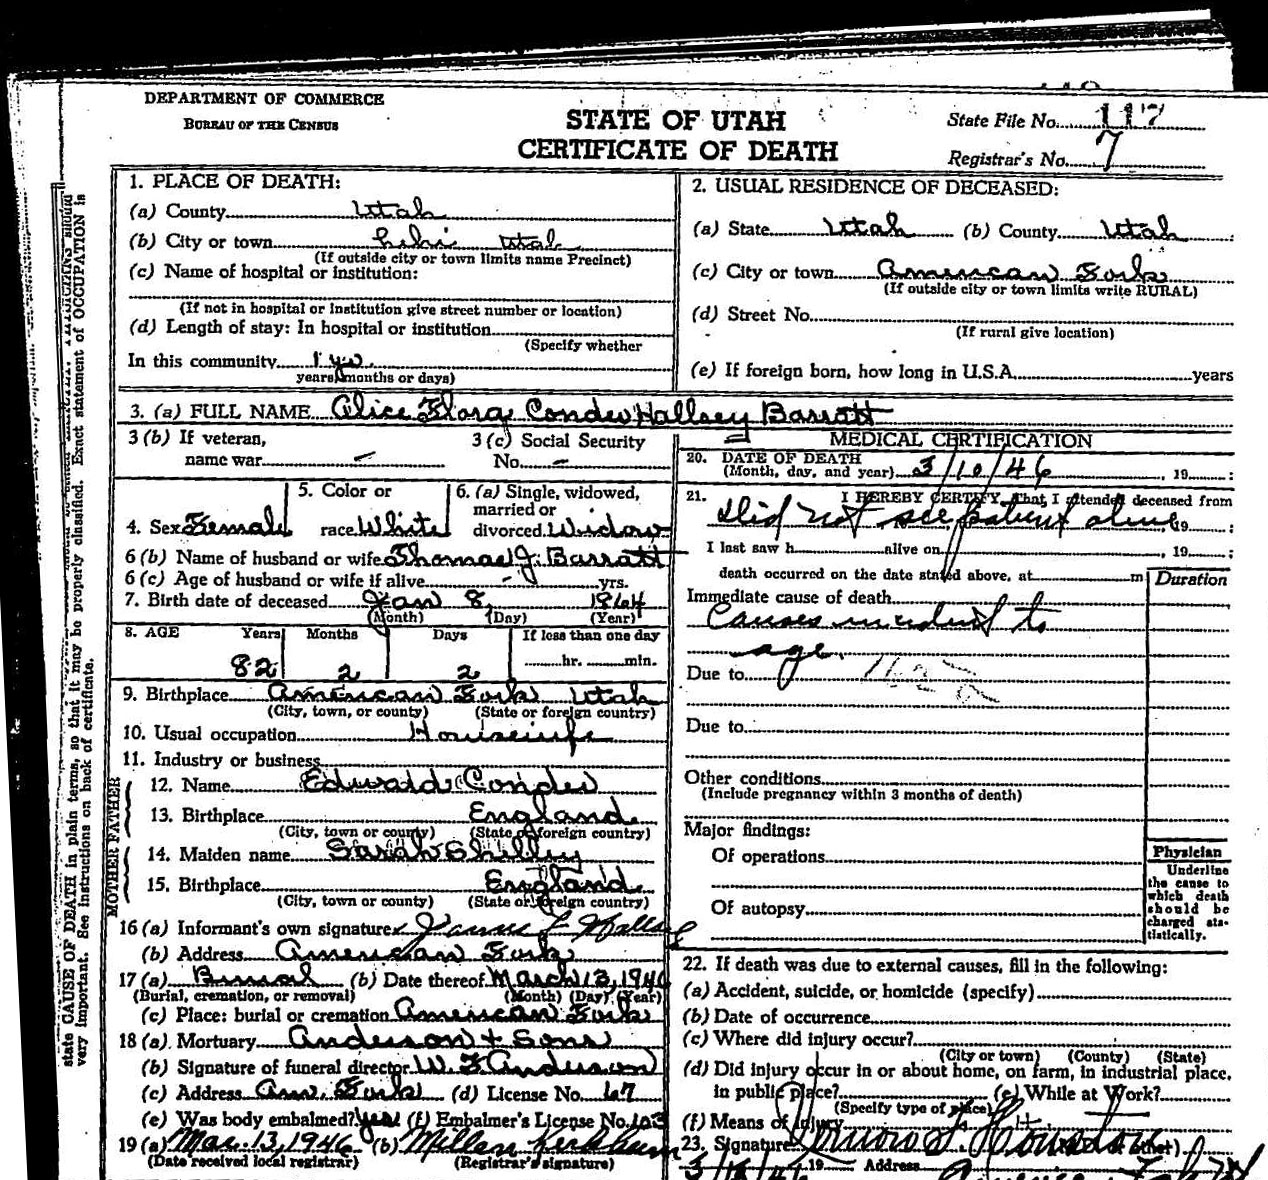 DEPARTMENT OF COMMERCE
BUREAU OF THE CENSUS
STATE OF UTAH
CERTIFICATE OF DEATH
State File No. 117
Registrar's No. 7
1. PLACE OF DEATH:
(a) County Utah
(b) City or town Lehi Utah
(If outside city or town limits name Precinct)
(c) Name of hospital or institution:
(If not in hospital or institution give street number or location)
(d) Length of stay: In hospital or institution
(Specify whether
In this community 1 yr.
years, months or days)
2. USUAL RESIDENCE OF DECEASED:
(a) State Utah (b) County Utah
(c) City or town American Fork
(If outside city or town limits write RURAL)
(d) Street No.
(If rural give location)
(e) If foreign born, how long in U.S.A. years
3. (a) FULL NAME Alice Flora Conder Hallsey Barratt
3 (b) If veteran, name war –
3 (c) Social Security No. –
4. Sex Female
5. Color or race White
6. (a) Single, widowed, married or divorced Widow
6 (b) Name of husband or wife Thomas J. Barratt
6 (c) Age of husband or wife if alive - yrs.
7. Birth date of deceased Jan 8, 1864
(Month) (Day) (Year)
8. AGE Years Months Days If less than one day
82 2 2 hr. min.
9. Birthplace American Fork Utah
(City, town, or county) (State or foreign country)
10. Usual occupation Housewife
11. Industry or business
FATHER
12. Name Edward Conder
13. Birthplace England
(City, town or county) (State or foreign country)
MOTHER
14. Maiden name Sarah Shelley
15. Birthplace England
(City, town or county) (State or foreign country)
16 (a) Informant's own signature
(b) Address American Fork
17 (a) Burial (b) Date thereof March 13, 1946
(Burial, cremation, or removal) (Month) (Day) (Year)
(c) Place: burial or cremation American Fork
18 (a) Mortuary Anderson + Sons
(b) Signature of funeral director W. F. Anderson
(c) Address Am. Fork (d) License No. 67
(e) Was body embalmed? yes (f) Embalmer's License No. 103
19 (a) Mar. 13, 1946 (b)
(Date received local registrar) (Registrar's signature)
MEDICAL CERTIFICATION
20. DATE OF DEATH
(Month, day, and year) 3/10/46 19 :
21. I HEREBY CERTIFY, That, I attended deceased from
Did not see patient alive 19 :
I last saw h alive on , 19 ;
death occurred on the date stated above, at m
Duration
Immediate cause of death
Causes incident to
age.
Due to
Due to
Other conditions
(Include pregnancy within 3 months of death)
Major findings:
Of operations
Of autopsy
Physician
Underline
the cause to
which death
should be
charged sta-
tistically.
22. If death was due to external causes, fill in the following:
(a) Accident, suicide, or homicide (specify)
(b) Date of occurrence
(c) Where did injury occur?
(City or town) (County) (State)
(d) Did injury occur in or about home, on farm, in industrial place,
in public place? (e) While at Work?
(Specify type of place)
(f) Means of injury
23. Signature
19 Address
state CAUSE OF DEATH in plain terms, so that it may be properly classified. Exact statement of OCCUPATION is
very important. See instructions on back of certificate.